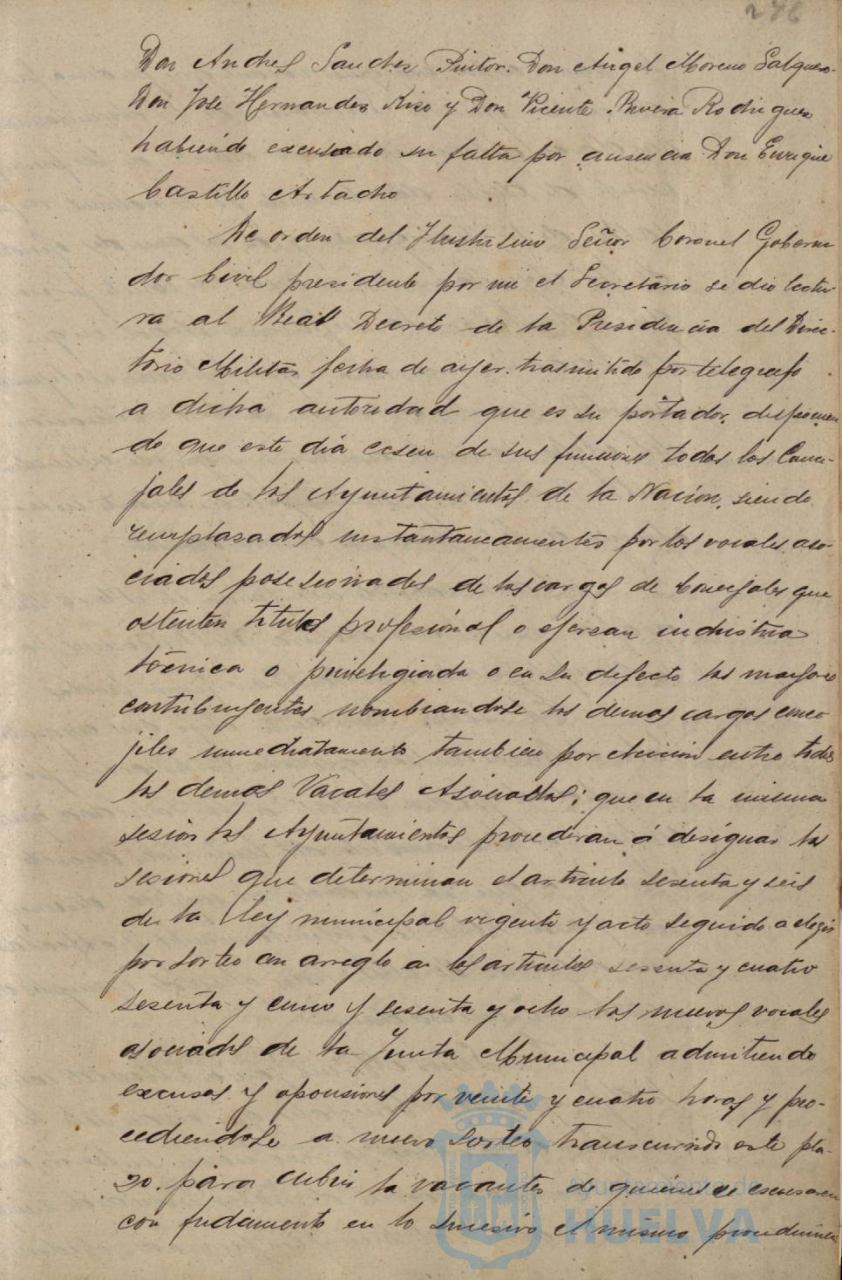 246
Don Andres Sanchez Pintor. Don Angel Moreno Salguero.
Don Jose Hernandez Riso y Don Vicente Rivera Rodriguez
habiendo excusado su falta por ausencia Don Enrique
Castillo Artacho
De orden del Ilustrisimo Señor Coronel Goberna
dor Civil presidente por mi el Secretario se dio lectu
ra al Real Decreto de la Presidencia del Direc-
torio Militar fecha de ayer trasmitido por telegrafo
a dicha autoridad que es su portador, disponien
do que este dia cesen de sus funciones todos los Conce-
jales de los Ayuntamientos de la Nacion, siendo
remplasados instantaneamentes por los vocales aso-
ciados posesionados de los cargos de Concejales que
ostenten titulos profesional o ejerzan industria
tecnica o privilegiada o en su defecto los mayores
contribuyentes nombrandose los demas cargos conce
jiles inmediatamente tambien por eleccion entre todos
los demas Vocales Asociados; que en la misma
sesion los Ayuntamientos procederan á designar las
sesiones que determinan el articulo sesenta y seis
de la Ley municipal vigente y acto seguido a elegir
por sorteo con arreglo a los articulos sesenta y cuatro
sesenta y cinco y sesenta y ocho los nuevos vocales
asociados de la Junta Municipal admitiendo
excusas y oposiciones por veinte y cuatro horas y pro-
cediendose a nuevo sorteo transcurrido este pla-
zo. para cubrir la vacantes de quienes se excusaren
con fudamento en lo sucesivo el mismo procedimien
Ayuntamiento de
HUELVA